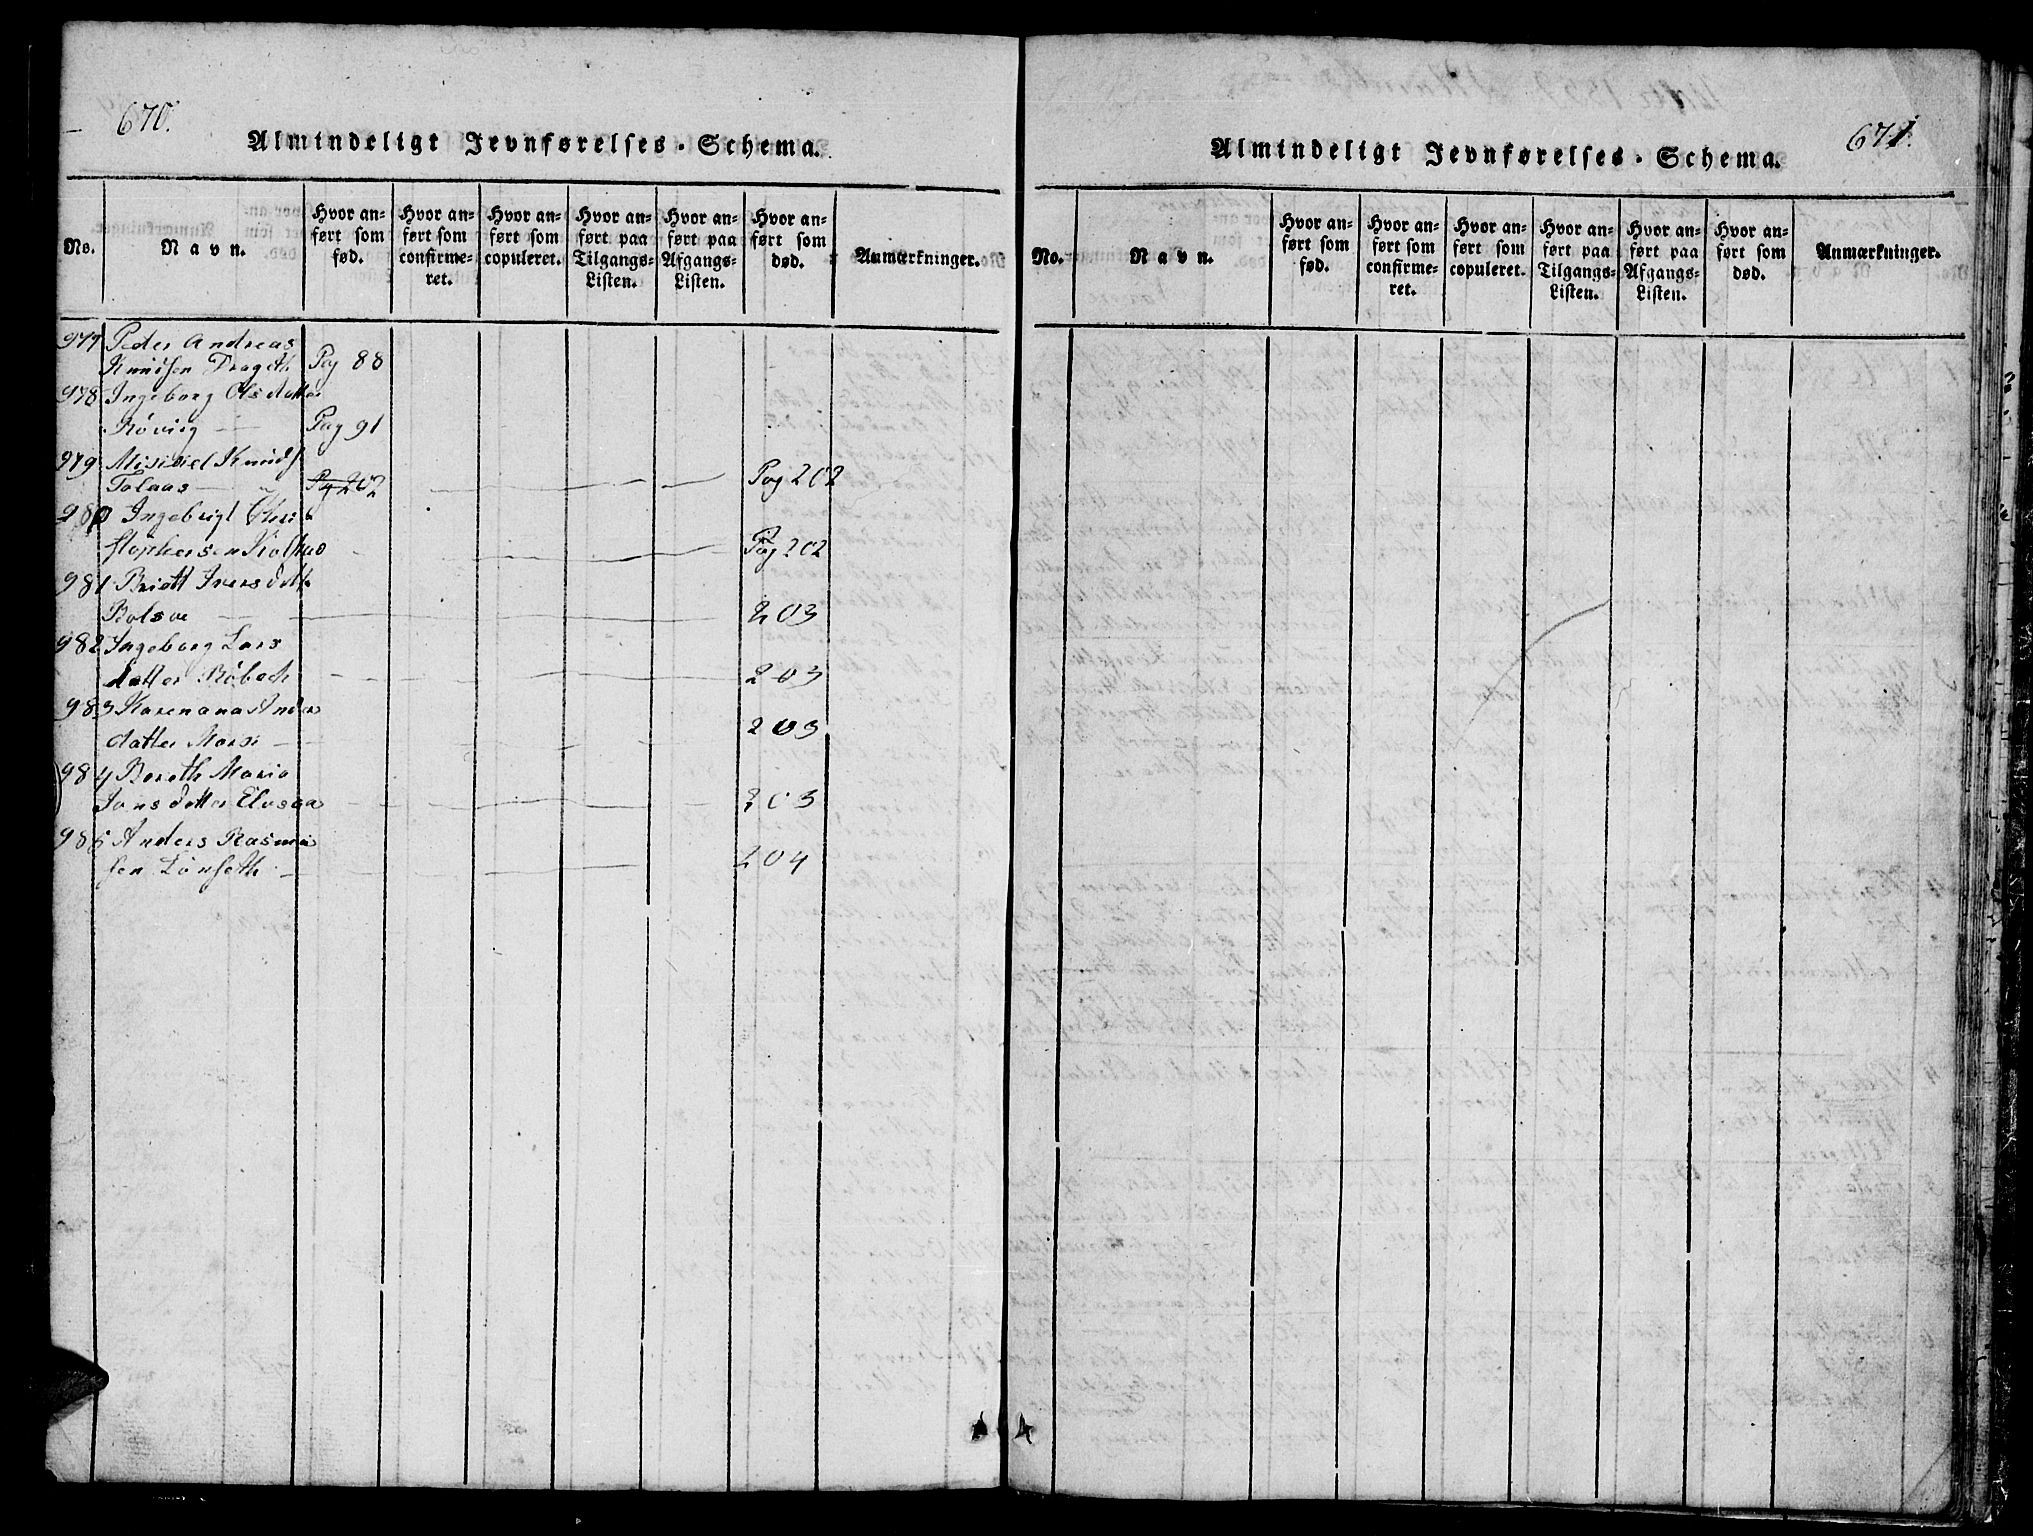 670.
Almindeligt Jevnførelses-Schema.
No.
Navn.
Hvor anført som fød.
Hvor anført som confirmeret.
Hvor anført som copuleret.
Hvor anført paa Tilgangs-Listen.
Hvor anført paa Afgangs-Listen.
Hvor anført som død.
Anmærkninger.
977 Peder Andreas
Knudsen Drageth Pag 88
978 Ingeborg Olsdatter
Røvig Pag 91
979 Knuds
Tolaas Pag 202 Pag 202
980 Ingebrigt Chri
stophersen Kolhus Pag 202
981 Briett Iversdatt
Bolsøe 203
982 Ingeborg Lars
datter Røbech 203
983 Karenana Anders
datter 203
984 Bereth Maria
Jonsdatter Elvsaa 203
985 Anders Rasmu
sen Lønseth 204
671.
Almindeligt Jevnførelses-Schema.
No.
Navn.
Hvor anført som fød.
Hvor anført som confirmeret.
Hvor anført som copuleret.
Hvor anført paa Tilgangs-Listen.
Hvor anført paa Afgangs-Listen.
Hvor anført som død.
Anmærkninger.